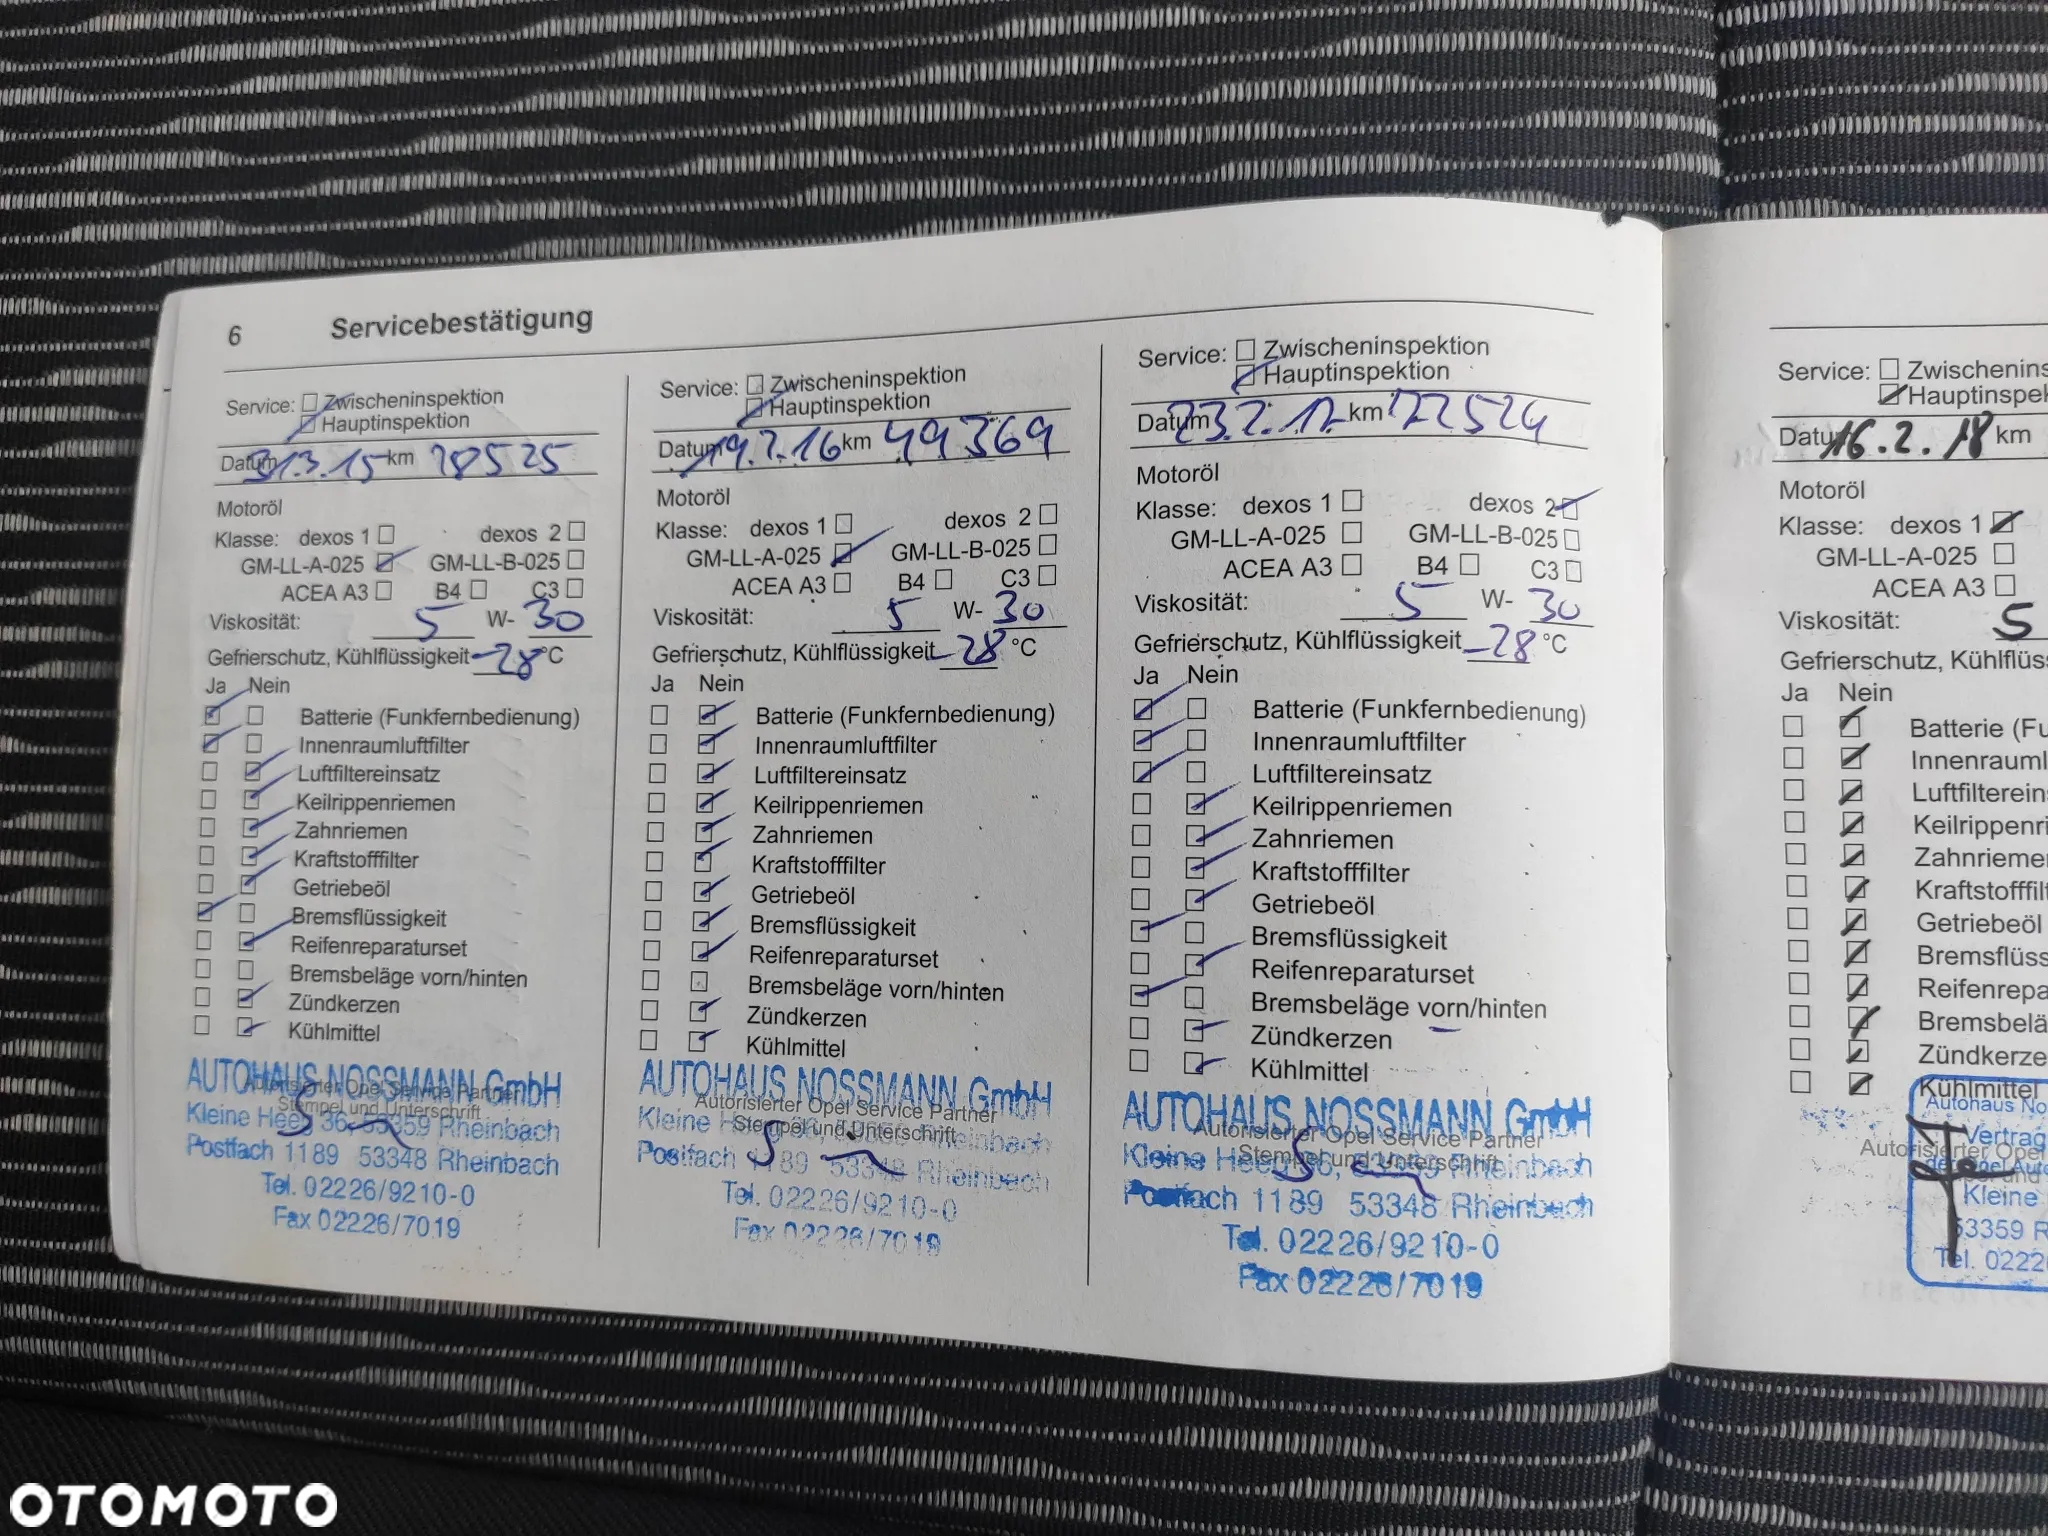 6 Servicebestätigung
Service: Zwischeninspektion
Hauptinspektion
Datum 31.3.15 km 28525
Motoröl
Klasse: dexos 1 dexos 2
GM-LL-A-025 GM-LL-B-025
ACEA A3 B4 C3
Viskosität: 5 W- 30
Gefrierschutz, Kühlflüssigkeit -28 °C
Ja Nein
Batterie (Funkfernbedienung)
Innenraumluftfilter
Luftfiltereinsatz
Keilrippenriemen
Zahnriemen
Kraftstofffilter
Getriebeöl
Bremsflüssigkeit
Reifenreparaturset
Bremsbeläge vorn/hinten
Zündkerzen
Kühlmittel
AUTOHAUS NOSSMANN GmbH
Autorisierter Opel Service Partner
Stempel und Unterschrift
Kleine Heeg 36, 53359 Rheinbach
Postfach 1189 53348 Rheinbach
Tel. 02226/9210-0
Fax 02226/7019
Service: Zwischeninspektion
Hauptinspektion
Datum 19.2.16 km 49369
Motoröl
Klasse: dexos 1 dexos 2
GM-LL-A-025 GM-LL-B-025
ACEA A3 B4 C3
Viskosität: 5 W- 30
Gefrierschutz, Kühlflüssigkeit -28 °C
Ja Nein
Batterie (Funkfernbedienung)
Innenraumluftfilter
Luftfiltereinsatz
Keilrippenriemen
Zahnriemen
Kraftstofffilter
Getriebeöl
Bremsflüssigkeit
Reifenreparaturset
Bremsbeläge vorn/hinten
Zündkerzen
Kühlmittel
AUTOHAUS NOSSMANN GmbH
Autorisierter Opel Service Partner
Stempel und Unterschrift
Kleine Rheinbach
Postfach 1189 53348 Rheinbach
Tel. 02226/9210-0
Fax 02226/7019
Service: Zwischeninspektion
Hauptinspektion
Datum 23.2.17 km 72524
Motoröl
Klasse: dexos 1 dexos 2
GM-LL-A-025 GM-LL-B-025
ACEA A3 B4 C3
Viskosität: 5 W- 30
Gefrierschutz, Kühlflüssigkeit -28 °C
Ja Nein
Batterie (Funkfernbedienung)
Innenraumluftfilter
Luftfiltereinsatz
Keilrippenriemen
Zahnriemen
Kraftstofffilter
Getriebeöl
Bremsflüssigkeit
Reifenreparaturset
Bremsbeläge vorn/hinten
Zündkerzen
Kühlmittel
AUTOHAUS NOSSMANN GmbH
Autorisierter Opel Service Partner
Stempel und Unterschrift
Kleine Heeg 36, Rheinbach
Postfach 1189 53348 Rheinbach
Tel. 02226/9210-0
Fax 02226/7019
Service: Zwischenins
Hauptinspek
Datu 16.2.18 km
Motoröl
Klasse: dexos 1
GM-LL-A-025
ACEA A3
Viskosität: 5
Gefrierschutz, Kühlflüss
Ja Nein
Batterie (Fu
Innenrauml
Luftfilterein
Keilrippenri
Zahnrieme
Kraftstofffil
Getriebeöl
Bremsflüss
Reifenrepa
Bremsbelä
Zündkerze
Kühlmittel
Autohaus No
Vertrag
Autorisierter Opel
Kleine
53359 R
Tel. 0222
OTOMOTO